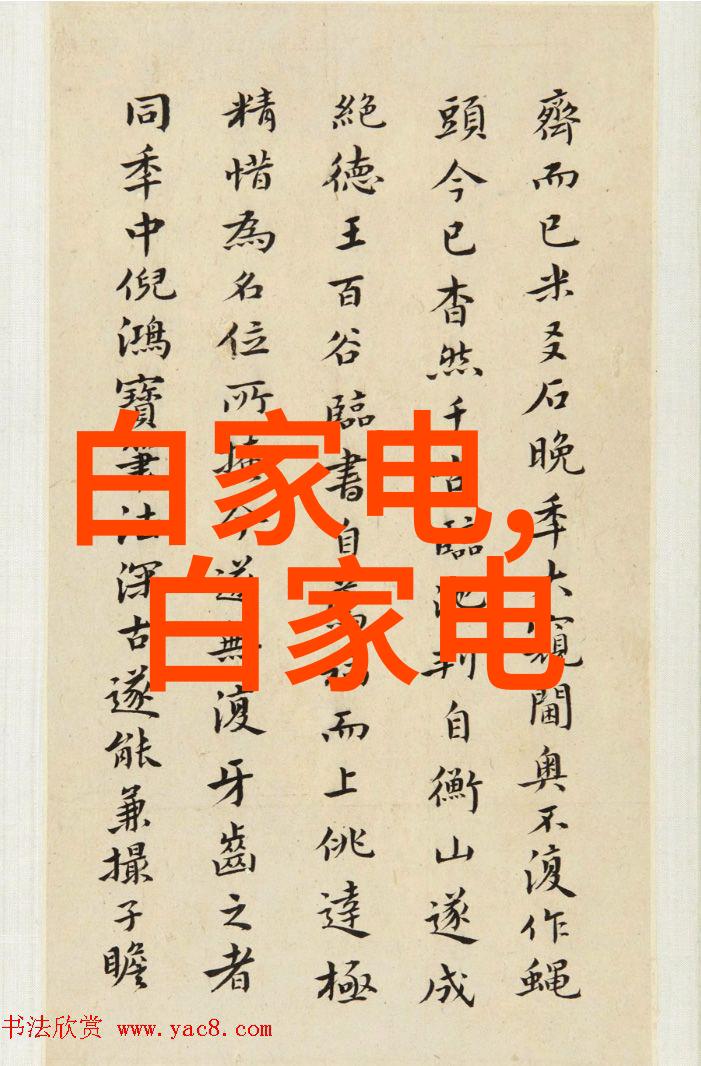 齊而已米友石晚季大窺閫奥不復作蝇
頭今已杳然千古臨池自衡山遂成
絶德王百谷臨書自而上佻達極
精惜為名位所掩今遂無復牙齒之者
同季中倪鴻寶筆法深古遂能兼撮子瞻
白家电,
白家电
书法欣赏 www.yac8.com